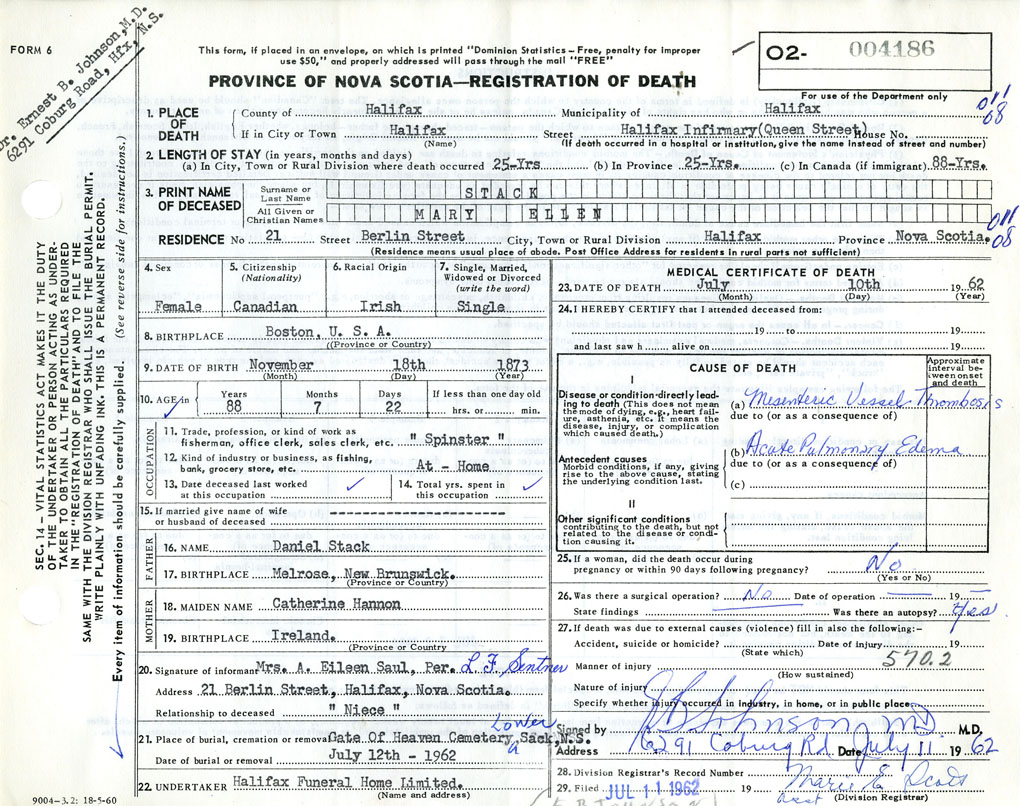 FORM 6
Dr. Ernest B. Johnson, M.D.
6291 Coburg Road, Hfx, N.S.
This form, if placed in an envelope, on which is printed "Dominion Statistics – Free, penalty for improper
use $50," and properly addressed will pass through the mail "FREE"
O2- 004186
PROVINCE OF NOVA SCOTIA—REGISTRATION OF DEATH
For use of the Department only
1. PLACE OF DEATH
County of Halifax Municipality of Halifax
If in City or Town Halifax Street Halifax Infirmary(Queen Street) House No.
(Name) (If death occurred in a hospital or institution, give the name instead of street and number)
2. LENGTH OF STAY (in years, months and days)
(a) In City, Town or Rural Division where death occurred 25-Yrs. (b) In Province 25-Yrs. (c) In Canada (if immigrant) 88-Yrs.
3. PRINT NAME OF DECEASED
Surname or Last Name STACK
All Given or Christian Names MARY ELLEN
RESIDENCE No 21 Street Berlin Street City, Town or Rural Division Halifax Province Nova Scotia.
(Residence means usual place of abode. Post Office Address for residents in rural parts not sufficient)
SEC. 14 – VITAL STATISTICS ACT MAKES IT THE DUTY
OF THE UNDERTAKER OR PERSON ACTING AS UNDER-
TAKER TO OBTAIN ALL THE PARTICULARS REQUIRED
IN THE "REGISTRATION OF DEATH" AND TO FILE THE
SAME WITH THE DIVISION REGISTRAR WHO SHALL ISSUE THE BURIAL PERMIT.
WRITE PLAINLY WITH UNFADING INK. THIS IS A PERMANENT RECORD.
Every item of information should be carefully supplied. (See reverse side for instructions.)
4. Sex
Female
5. Citizenship
(Nationality)
Canadian
6. Racial Origin
Irish
7. Single, Married,
Widowed or Divorced
(write the word)
Single
8. BIRTHPLACE Boston, U. S. A.
((Province or Country)
9. DATE OF BIRTH November 18th 1873
(Month) (Day) (Year)
10. AGE in Years Months Days If less than one day old
88 7 22 hrs. or min.
OCCUPATION
11. Trade, profession, or kind of work as
fisherman, office clerk, sales clerk, etc. " Spinster "
12. Kind of industry or business, as fishing,
bank, grocery store, etc. At - Home
13. Date deceased last worked
at this occupation
14. Total yrs. spent in
this occupation
15. If married give name of wife
or husband of deceased --------------------
FATHER
16. NAME Daniel Stack
17. BIRTHPLACE Melrose, New Brunswick.
(Province or Country)
MOTHER
18. MAIDEN NAME Catherine Hannon
19. BIRTHPLACE Ireland.
(Province or Country)
20. Signature of informant Mrs. A. Eileen Saul, Per. L. F. Sentner
Address 21 Berlin Street, Halifax, Nova Scotia.
Relationship to deceased " Niece "
21. Place of burial, cremation or removal Gate Of Heaven Cemetery Lower Sack, N.S.
Date of burial or removal July 12th - 1962
22. UNDERTAKER Halifax Funeral Home Limited.
(Name and address)
9004–3.2: 18-5-60
MEDICAL CERTIFICATE OF DEATH
23. DATE OF DEATH July 10th 1962
(Month) (Day) (Year)
24. I HEREBY CERTIFY that I attended deceased from:
19 to 19
and last saw h alive on 19
CAUSE OF DEATH
Approximate
interval be-
tween onset
and death
I
Disease or condition directly lead-
ing to death (This does not mean
the mode of dying, e.g., heart fail-
ure, asthenia, etc. It means the
disease, injury, or complication
which caused death.)
(a) Mesenteric Vessel Thrombosis
due to (or as a consequence of)
Antecedent causes
Morbid conditions, if any, giving
rise to the above cause, stating
the underlying condition last.
(b) Acute Pulmonary Edema
due to (or as a consequence of)
(c)
II
Other significant conditions
contributing to the death, but not
related to the disease or condi-
tion causing it.
25. If a woman, did the death occur during
pregnancy or within 90 days following pregnancy? No
(Yes or No)
26. Was there a surgical operation? No Date of operation 19
State findings Was there an autopsy? Yes
27. If death was due to external causes (violence) fill in also the following:–
Accident, suicide or homicide? Date of injury 19
(State which) 570.2
Manner of injury
(How sustained)
Nature of injury
Specify whether injury occurred in industry, in home, or in public place
Signed by E B Johnson MD M.D.
Address 6291 Coburg Rd Date July 11 1962
28. Division Registrar's Record Number
29. Filed JUL 11 1962 19 Marie E. Scott
Asst (Division Registrar)